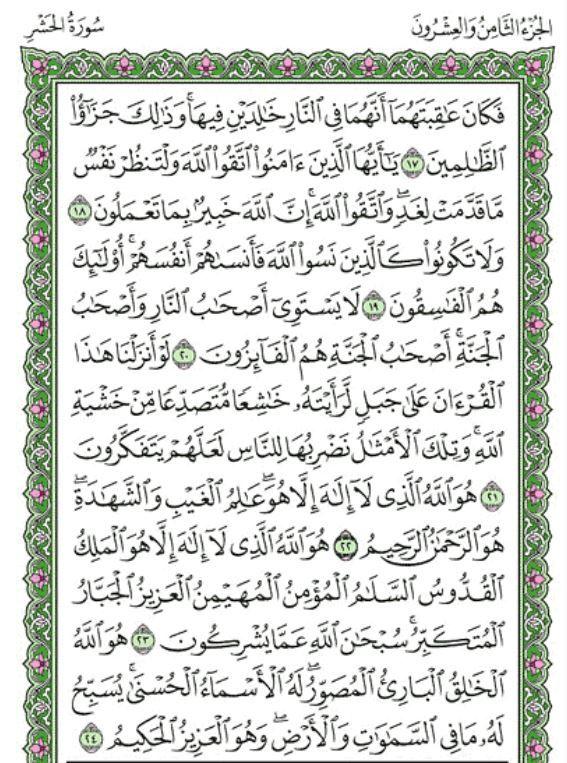 الجزء الثامن والعشرون
سورة الحشر
فَكَانَ عَٰقِبَتَهُمَآ أَنَّهُمَا فِى ٱلنَّارِ خَٰلِدَيْنِ فِيهَا ۚ وَذَٰلِكَ جَزَٰٓؤُا۟
ٱلظَّٰلِمِينَ ١٧ يَٰٓأَيُّهَا ٱلَّذِينَ ءَامَنُوا۟ ٱتَّقُوا۟ ٱللَّهَ وَلْتَنظُرْ نَفْسٌ
مَّا قَدَّمَتْ لِغَدٍ ۖ وَٱتَّقُوا۟ ٱللَّهَ ۚ إِنَّ ٱللَّهَ خَبِيرٌۢ بِمَا تَعْمَلُونَ ١٨
وَلَا تَكُونُوا۟ كَٱلَّذِينَ نَسُوا۟ ٱللَّهَ فَأَنسَىٰهُمْ أَنفُسَهُمْ ۚ أُو۟لَٰٓئِكَ
هُمُ ٱلْفَٰسِقُونَ ١٩ لَا يَسْتَوِىٓ أَصْحَٰبُ ٱلنَّارِ وَأَصْحَٰبُ
ٱلْجَنَّةِ ۚ أَصْحَٰبُ ٱلْجَنَّةِ هُمُ ٱلْفَآئِزُونَ ٢٠ لَوْ أَنزَلْنَا هَٰذَا
ٱلْقُرْءَانَ عَلَىٰ جَبَلٍ لَّرَأَيْتَهُۥ خَٰشِعًا مُّتَصَدِّعًا مِّنْ خَشْيَةِ
ٱللَّهِ ۚ وَتِلْكَ ٱلْأَمْثَٰلُ نَضْرِبُهَا لِلنَّاسِ لَعَلَّهُمْ يَتَفَكَّرُونَ
٢١ هُوَ ٱللَّهُ ٱلَّذِى لَآ إِلَٰهَ إِلَّا هُوَ ۖ عَٰلِمُ ٱلْغَيْبِ وَٱلشَّهَٰدَةِ ۖ
هُوَ ٱلرَّحْمَٰنُ ٱلرَّحِيمُ ٢٢ هُوَ ٱللَّهُ ٱلَّذِى لَآ إِلَٰهَ إِلَّا هُوَ ٱلْمَلِكُ
ٱلْقُدُّوسُ ٱلسَّلَٰمُ ٱلْمُؤْمِنُ ٱلْمُهَيْمِنُ ٱلْعَزِيزُ ٱلْجَبَّارُ
ٱلْمُتَكَبِّرُ ۚ سُبْحَٰنَ ٱللَّهِ عَمَّا يُشْرِكُونَ ٢٣ هُوَ ٱللَّهُ
ٱلْخَٰلِقُ ٱلْبَارِئُ ٱلْمُصَوِّرُ ۖ لَهُ ٱلْأَسْمَآءُ ٱلْحُسْنَىٰ ۚ يُسَبِّحُ
لَهُۥ مَا فِى ٱلسَّمَٰوَٰتِ وَٱلْأَرْضِ ۖ وَهُوَ ٱلْعَزِيزُ ٱلْحَكِيمُ ٢٤